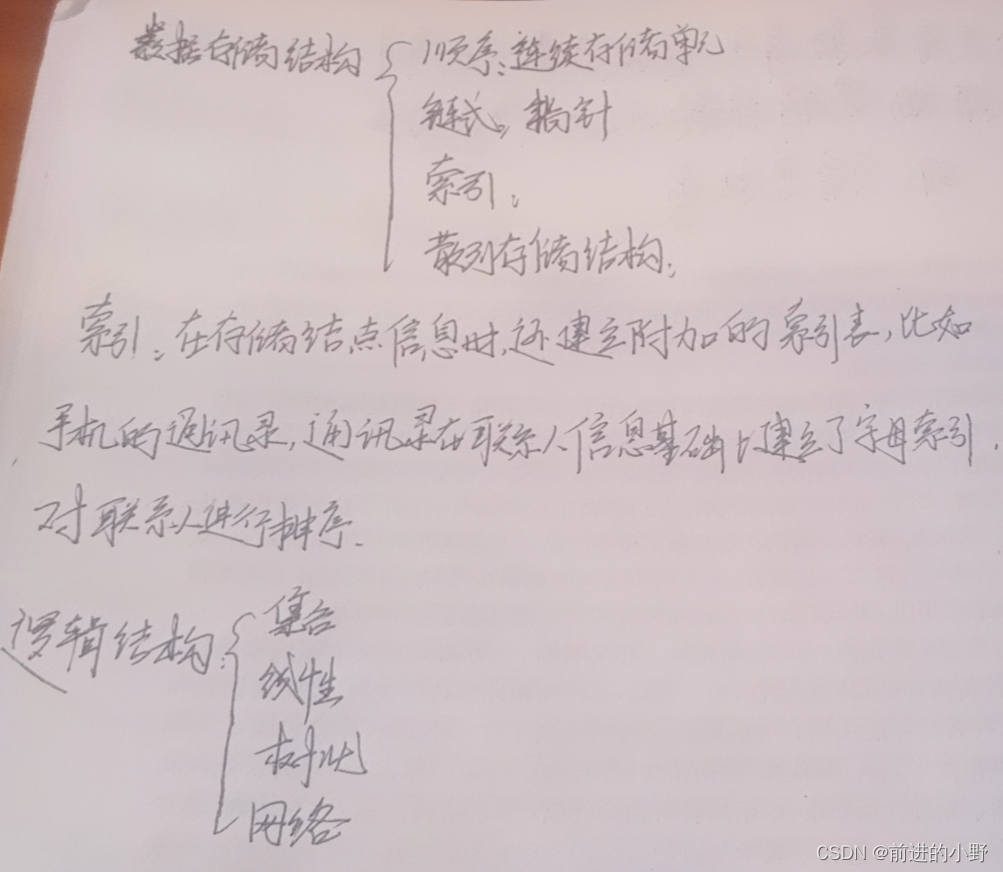 数据存储结构
顺序:连续存储单元
链式:指针
索引:
散列存储结构:
索引:在存储结点信息时,还建立附加的索引表,比如
手机的通讯录,通讯录在联系人信息基础上建立了字母索引,
对联系人进行排序.
逻辑结构:
集合
线性
树状
网络
CSDN @前进的小野